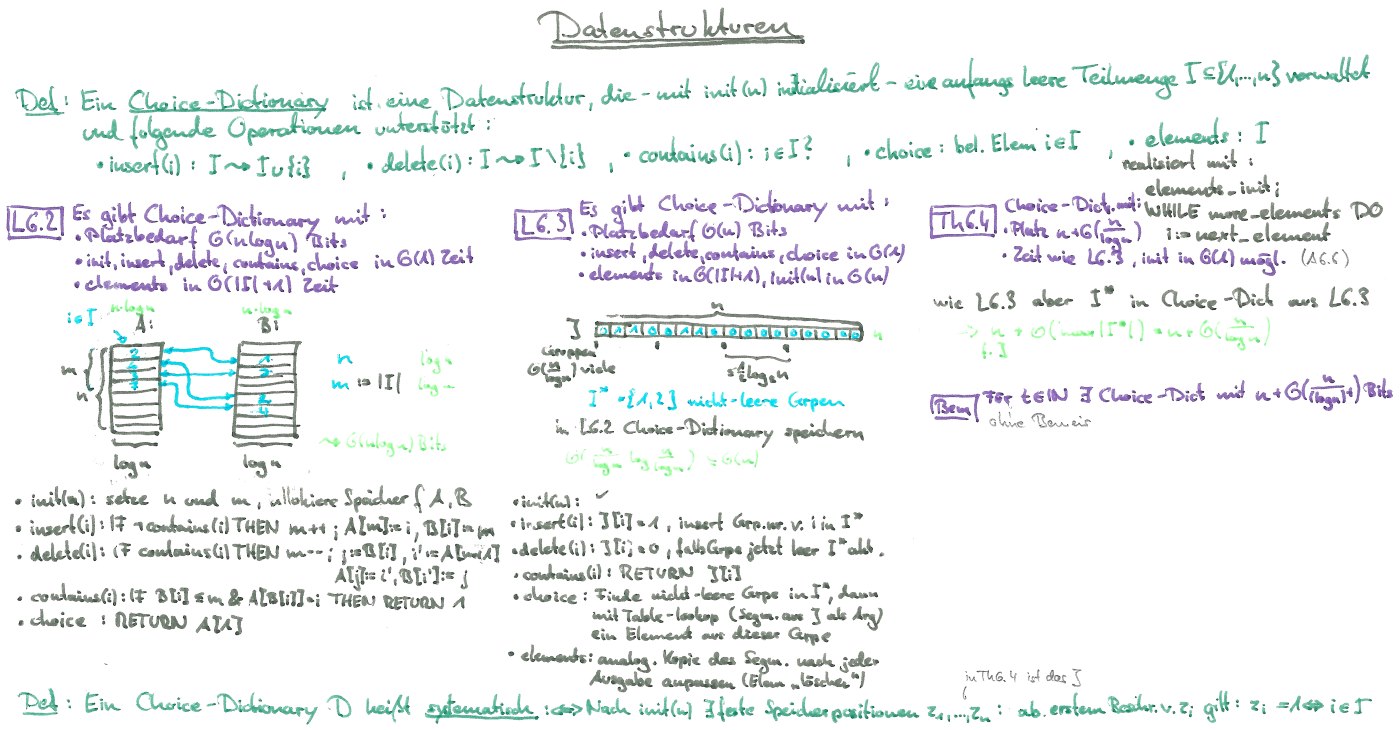 Datenstrukturen
Def: Ein Choice-Dictionary ist eine Datenstruktur, die - mit init(n) initialisiert - eine anfangs leere Teilmenge I ⊆ {1,...,n} verwaltet
und folgende Operationen unterstützt:
• insert(i): I ⇝ I ∪ {i} , • delete(i): I ⇝ I \ {i} , • contains(i): i ∈ I? , • choice: bel. Elem i ∈ I , • elements: I
realisiert mit:
elements_init;
WHILE more_elements DO
i := next_element
L6.2 Es gibt Choice-Dictionary mit:
• Platzbedarf O(n log n) Bits
• init, insert, delete, contains, choice in O(1) Zeit
• elements in O(|I|+1) Zeit
i ∈ I
n·log n
n·log n
A:
B:
m
n
2
1
3
4
1
2
4
log n
log n
n log n
m := |I| log n
⇝ O(n log n) Bits
• init(n): setze n und m, allokiere Speicher f. A, B
• insert(i): IF ¬contains(i) THEN m++; A[m]:=i, B[i]:=m
• delete(i): IF contains(i) THEN m--; j:=B[i], i':=A[m+1]
A[j]:=i', B[i']:=j
• contains(i): IF B[i] ≤ m & A[B[i]]=i THEN RETURN 1
• choice: RETURN A[1]
L6.3 Es gibt Choice-Dictionary mit:
• Platzbedarf O(n) Bits
• insert, delete, contains, choice in O(1)
• elements in O(|I|+1), init(n) in O(n)
n
J 0 1 1 0 0 1 1 0 0 0 0 0 0 0 0 0 0 n
Gruppen
O(n/log n) viele
≤ ½ log n
I* = {1,2} nicht-leere Grpen
in L6.2 Choice-Dictionary speichern
O(n/log n log n/log n) = O(n)
• init(n): ✓
• insert(i): J[i]=1, insert Grp.nr. v. i in I*
• delete(i): J[i]=0, falls Grpe jetzt leer I* akt.
• contains(i): RETURN J[i]
• choice: Finde nicht-leere Grpe in I*, dann
mit Table-lookup (Segm. aus J als Arg)
ein Element aus dieser Grpe
• elements: analog. Kopie des Segm. nach jeder
Ausgabe anpassen (Elem "löschen")
Th6.4 Choice-Dict. mit:
• Platz n+O(n/log n)
• Zeit wie L6.3, init in O(1) mögl. (A6.6)
wie L6.3 aber I* in Choice-Dict aus L6.3
⇒ n + O(max |I*|) = n + O(n/log n)
f. J
Bem Für t ∈ ℕ ∃ Choice-Dict mit n + O(n/(log n)^t) Bits
ohne Beweis
in Th6.4 ist das J
Def: Ein Choice-Dictionary D heißt systematisch :⇔ Nach init(n) ∃ feste Speicherpositionen z₁,...,zₙ: ab erstem Beschr. v. zᵢ gilt: zᵢ = 1 ⇔ i ∈ I